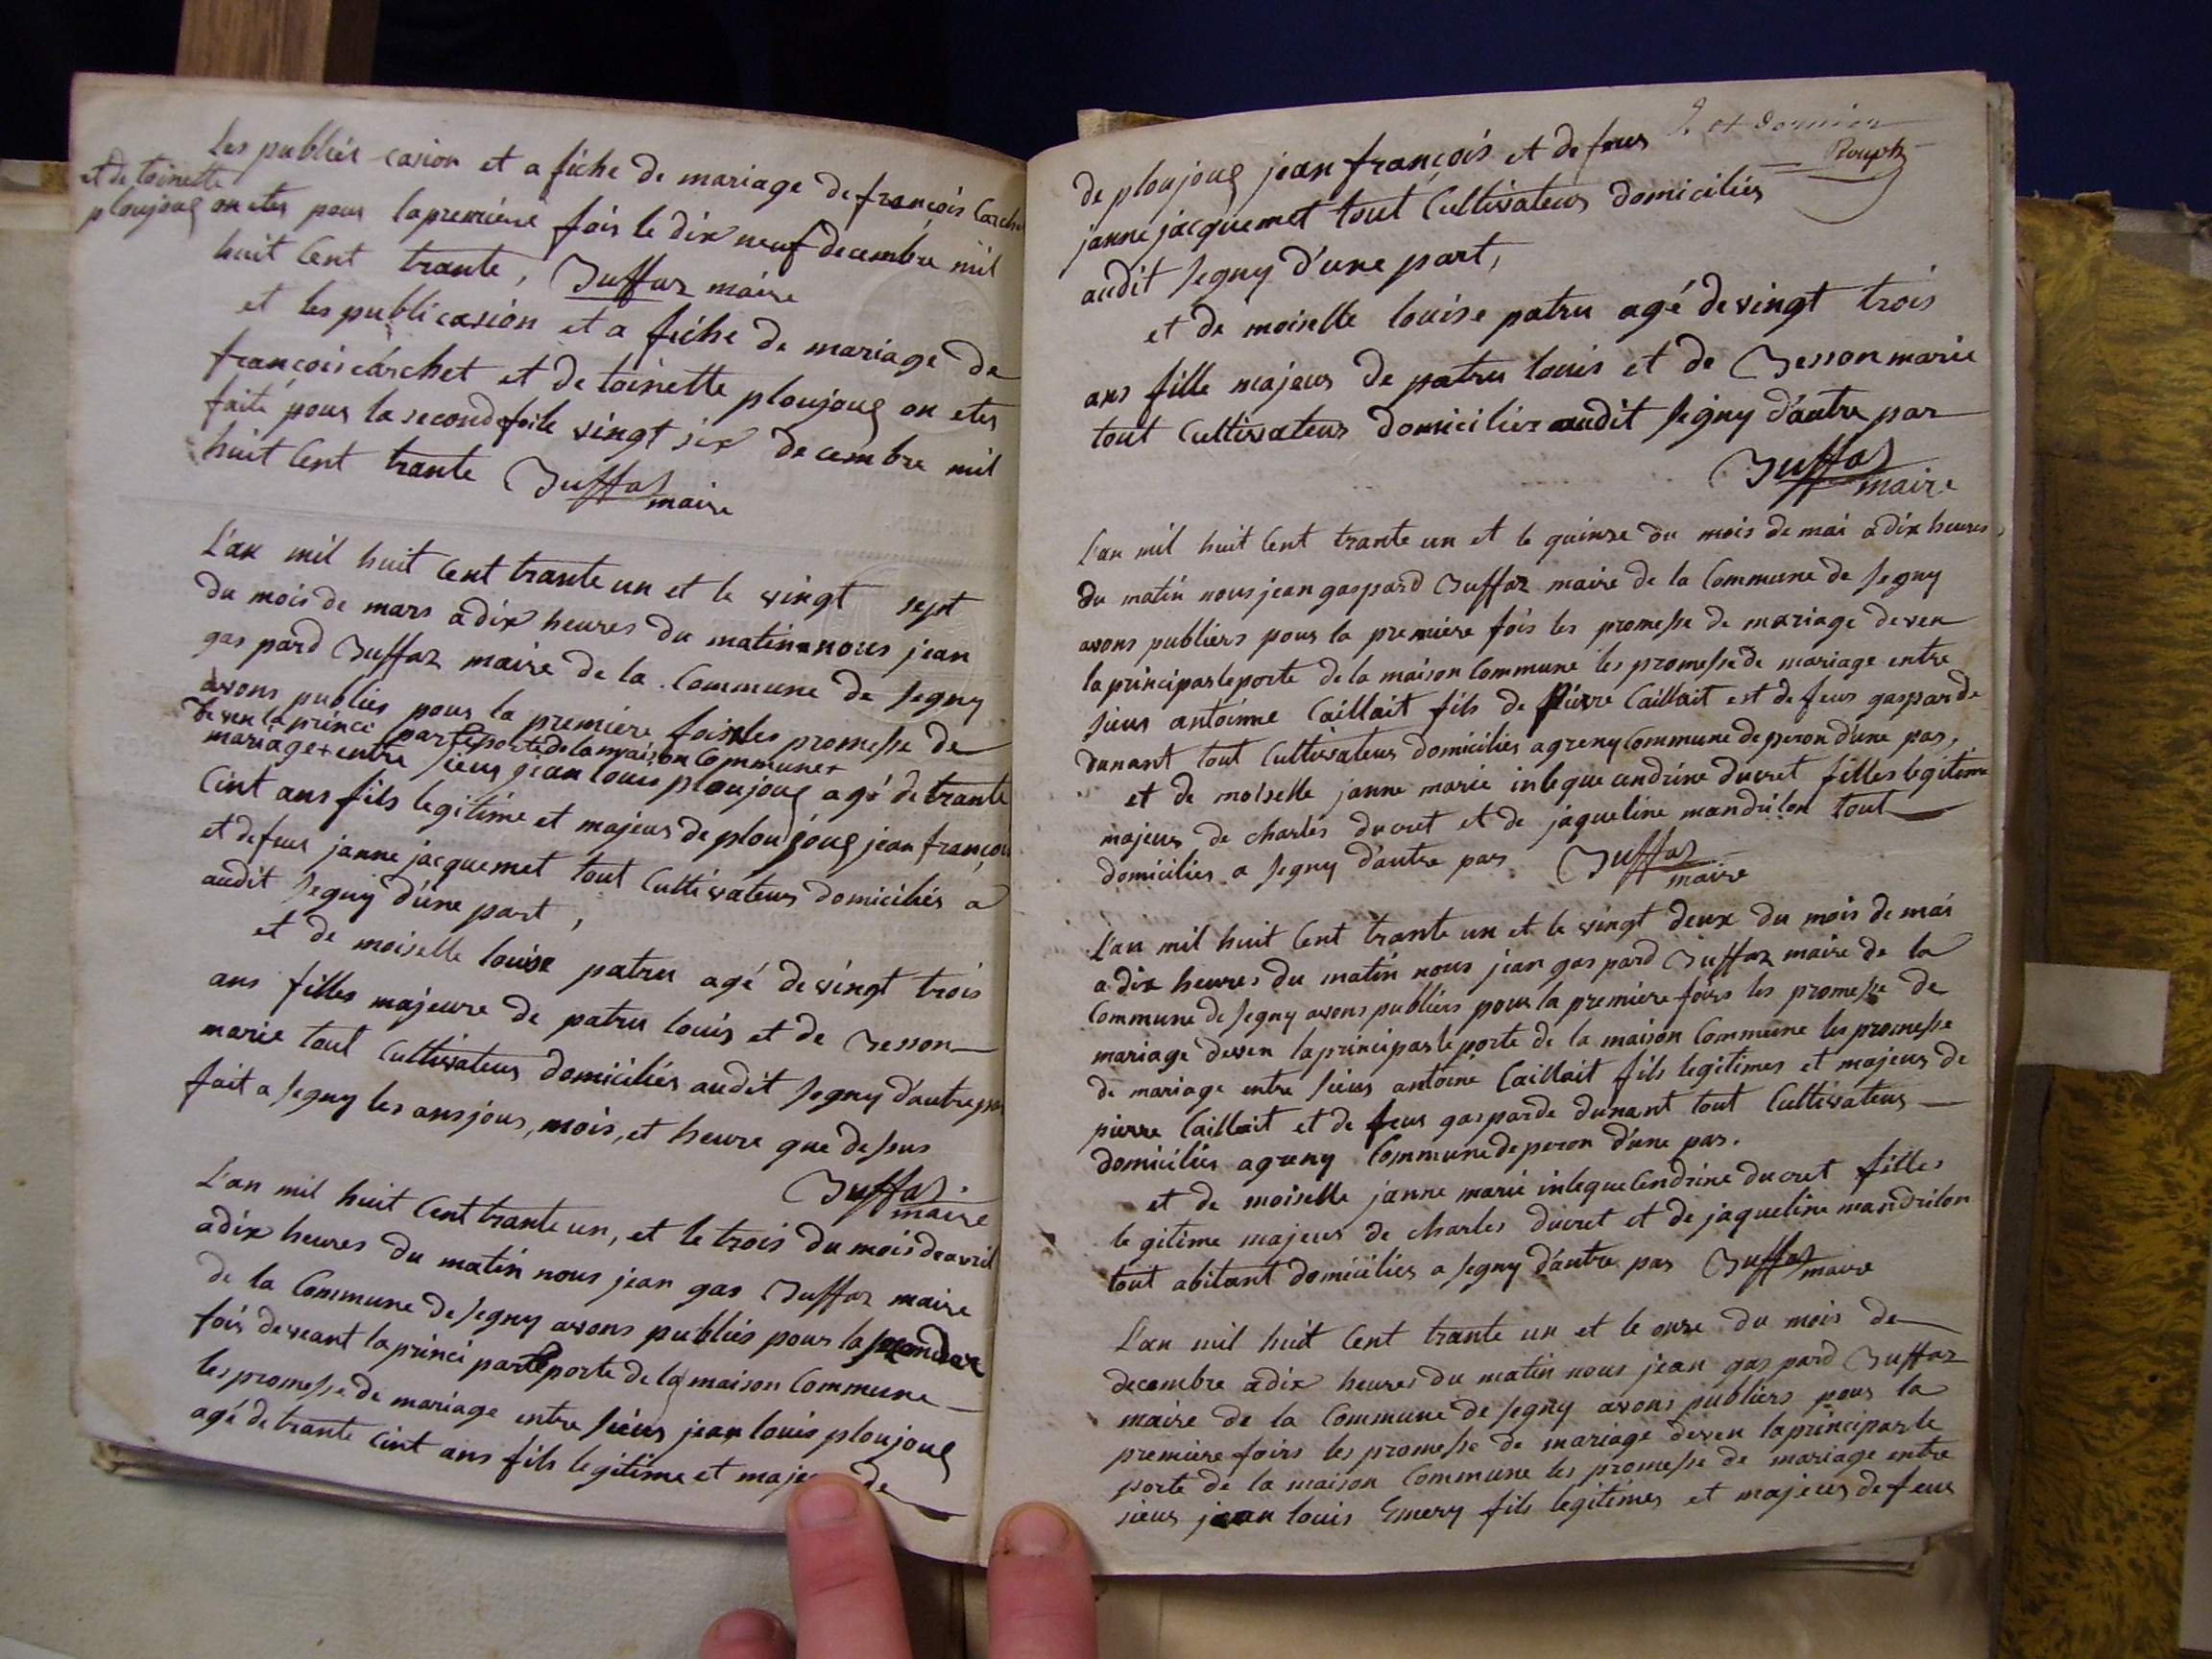 Les publier casion et a fiche de mariage de françois Carchet
et de toinette
ploujoug on etes pour la premiere fois le dix neuf decembre mil
huit Cent trante, Buffaz maire
et les publicasion et a fiche de mariage de
françois carchet et de toinette ploujoug on etes
faite pour la second fois le vingt six decembre mil
huit Cent trante Buffaz
maire
L'an mil huit Cent trante un et le vingt sept
du mois de mars a dix heures du matin nous jean
gas pard Buffaz maire de la Commune de segny
avons publies pour la premiere fois les promesse de
deven la princi parle porte de la maison Commune+
mariage + entre sieur jean louis ploujoug agé de trante
Cint ans fils legitime et majeur de ploujoug jean françois
et de feue janne jacquemet tout Cultivateur domiciliés a
audit segny d'une part,
et de moiselle louise patru agé de vingt trois
ans filles majeure de patru louis et de Besson
marie tout Cultivateur domiciliés audit segny d'autre par
fait a segny les ans jour, mois, et heure que dessus
Buffaz
maire
L'an mil huit Cent trante un, et le trois du mois de avril
a dix heures du matin nous jean gas Buffaz maire
de la Commune de segny avons publiés pour la seconde
fois deveant la princi parle porte de la maison Commune
les promesse de mariage entre sieur jean louis ploujoug
agé de trante Cint ans fils legitime et majeur de
2. et dernier
Rouph
de ploujoug jean françois et de feue
janne jacquemet tout Cultivateur domiciliés
audit segny d'une part,
et de moiselle louise patru agé de vingt trois
ans fille majeur de patru louis et de Besson marie
tout Cultivateur domicilier audit segny d'autre par
Buffaz
maire
L'an mil huit Cent trante un et le quinze du mois de mai a dix heures
du matin nous jean gaspard Buffaz maire de la Commune de segny
avons publiers pour la premiere fois les promesse de mariage deven
la principarle porte de la maison Commune les promesse de mariage entre
sieur antoinne Caillait fils de Pierre Caillait est de feue gasparde
dunant tout Cultivateur domiciliés a greny Commune de peron d'une par,
et de moiselle janne marie inleque andrine ducret filles legitime
majeur de charles ducret et de jaqueline mandrilon tout
domiciliés a segny d'autre par Buffaz
maire
L'an mil huit Cent trante un et le vingt deux du mois de mai
a dix heures du matin nous jean gas pard Buffaz maire de la
Commune de segny avons publiers pour la premiere foirs les promesse de
mariage deven la principarle porte de la maison Commune les promesse
de mariage entre sieur antoine Caillait fils legitimes et majeur de
pierre Caillait et de feue gasparde dunant tout Cultivateur
domiciliés a greny Commune de peron d'une par.
et de moiselle janne marie inleque Cendrine ducret filles
le gitime majeur de charles ducret et de jaqueline mandrilon
tout abitant domiciliés a segny d'autre par Buffaz maire
L'an mil huit Cent trante un et le onze du mois de
decembre a dix heures du matin nous jean gas pard Buffaz
maire de la Commune de segny avons publiers pour la
premiere foirs les promesse de mariage deven la principarle
porte de la maison Commune les promesse de mariage entre
sieur jean louis Emery fils legitimes et majeur de feue